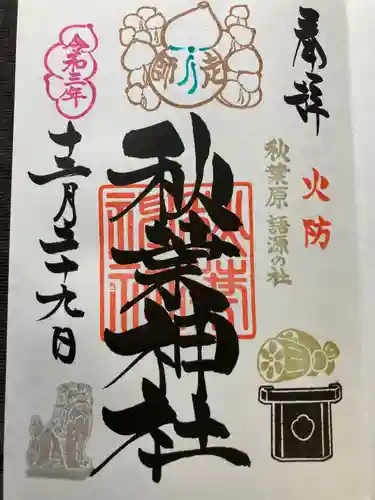 奉拝
火防
秋葉原 語源の社
老師
秋葉神社
令和三年
十二月二十九日